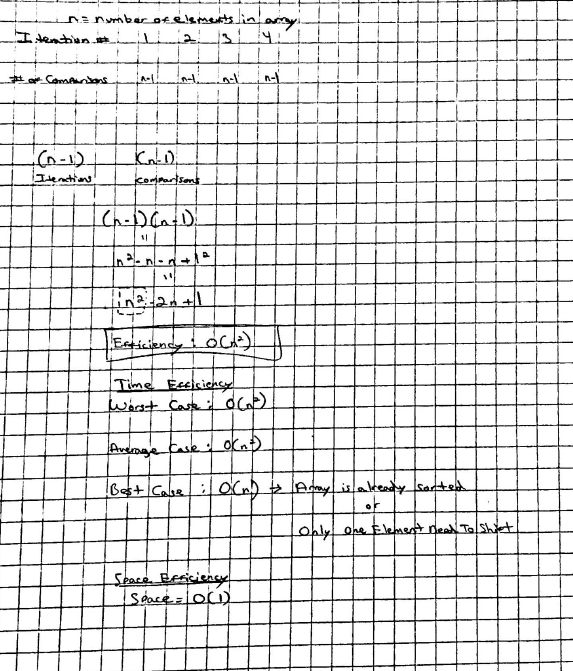 n = number of elements in array
Iteration # 1 2 3 4
# of Comparisons n-1 n-1 n-1 n-1
(n-1) (n-1)
Iterations comparisons
(n-1)(n-1)
=
n²-n-n+1²
=
n²-2n+1
Efficiency : O(n²)
Time Efficiency
Worst Case : O(n²)
Average Case : O(n²)
Best Case : O(n) → Array is already sorted
or
Only One Element Need To Shift
Space Efficiency
Space = O(1)